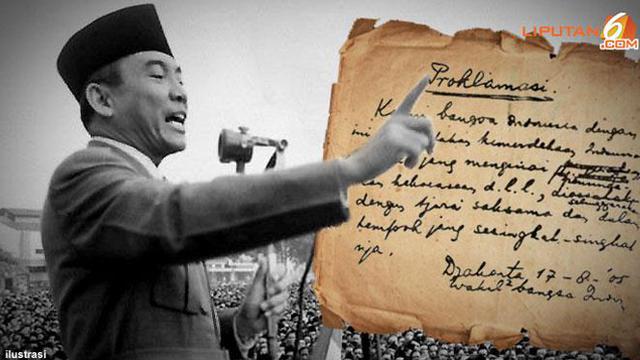 LIPUTAN 6 .COM
Proklamasi.
Kami bangsa Indonesia dengan
ini kemerdekaan Indonesia
jang mengenai
kekoeasaan d.l.l.,
dengan tjara saksama dan dalam
tempoh jang sesingkat-singkat
nja.
Djakarta 17-8-'05
Wakil2 bangsa Indon
ilustrasi